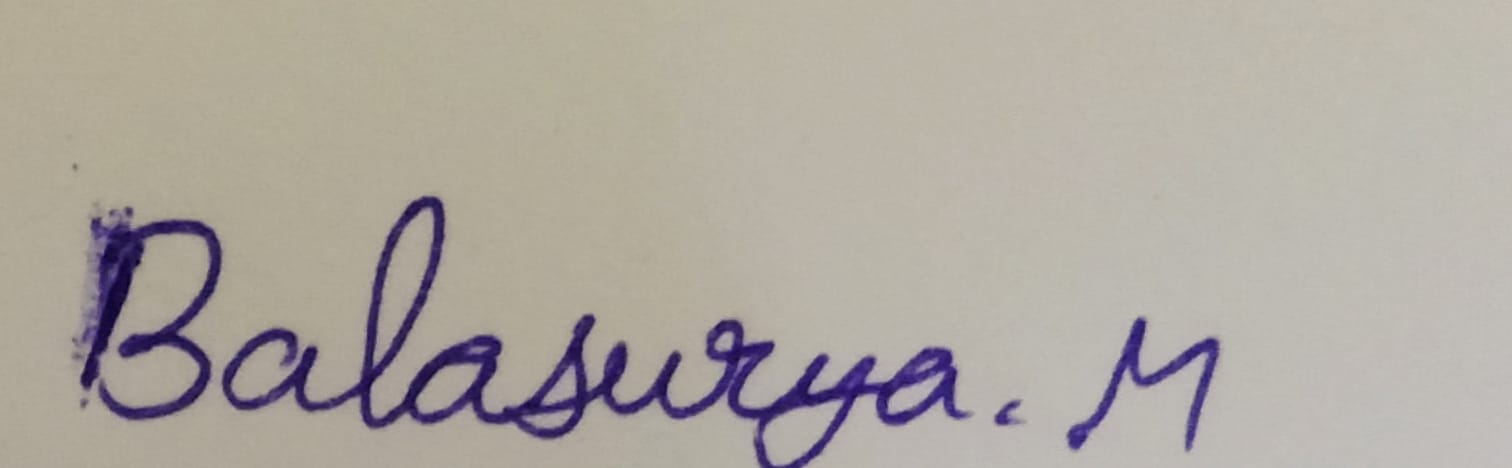 Balasurya. M